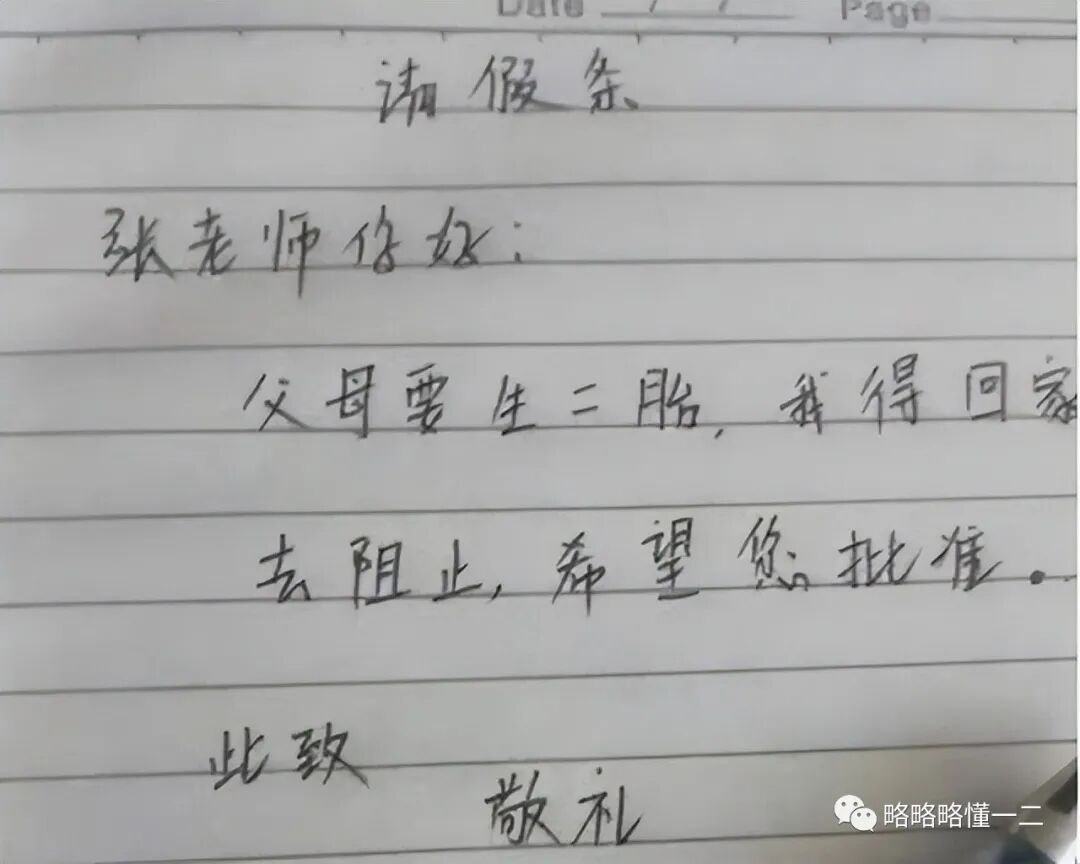 Date / / Page
请假条
张老师你好:
父母要生二胎,我得回家
去阻止,希望您批准。
此致
敬礼
略略略懂一二